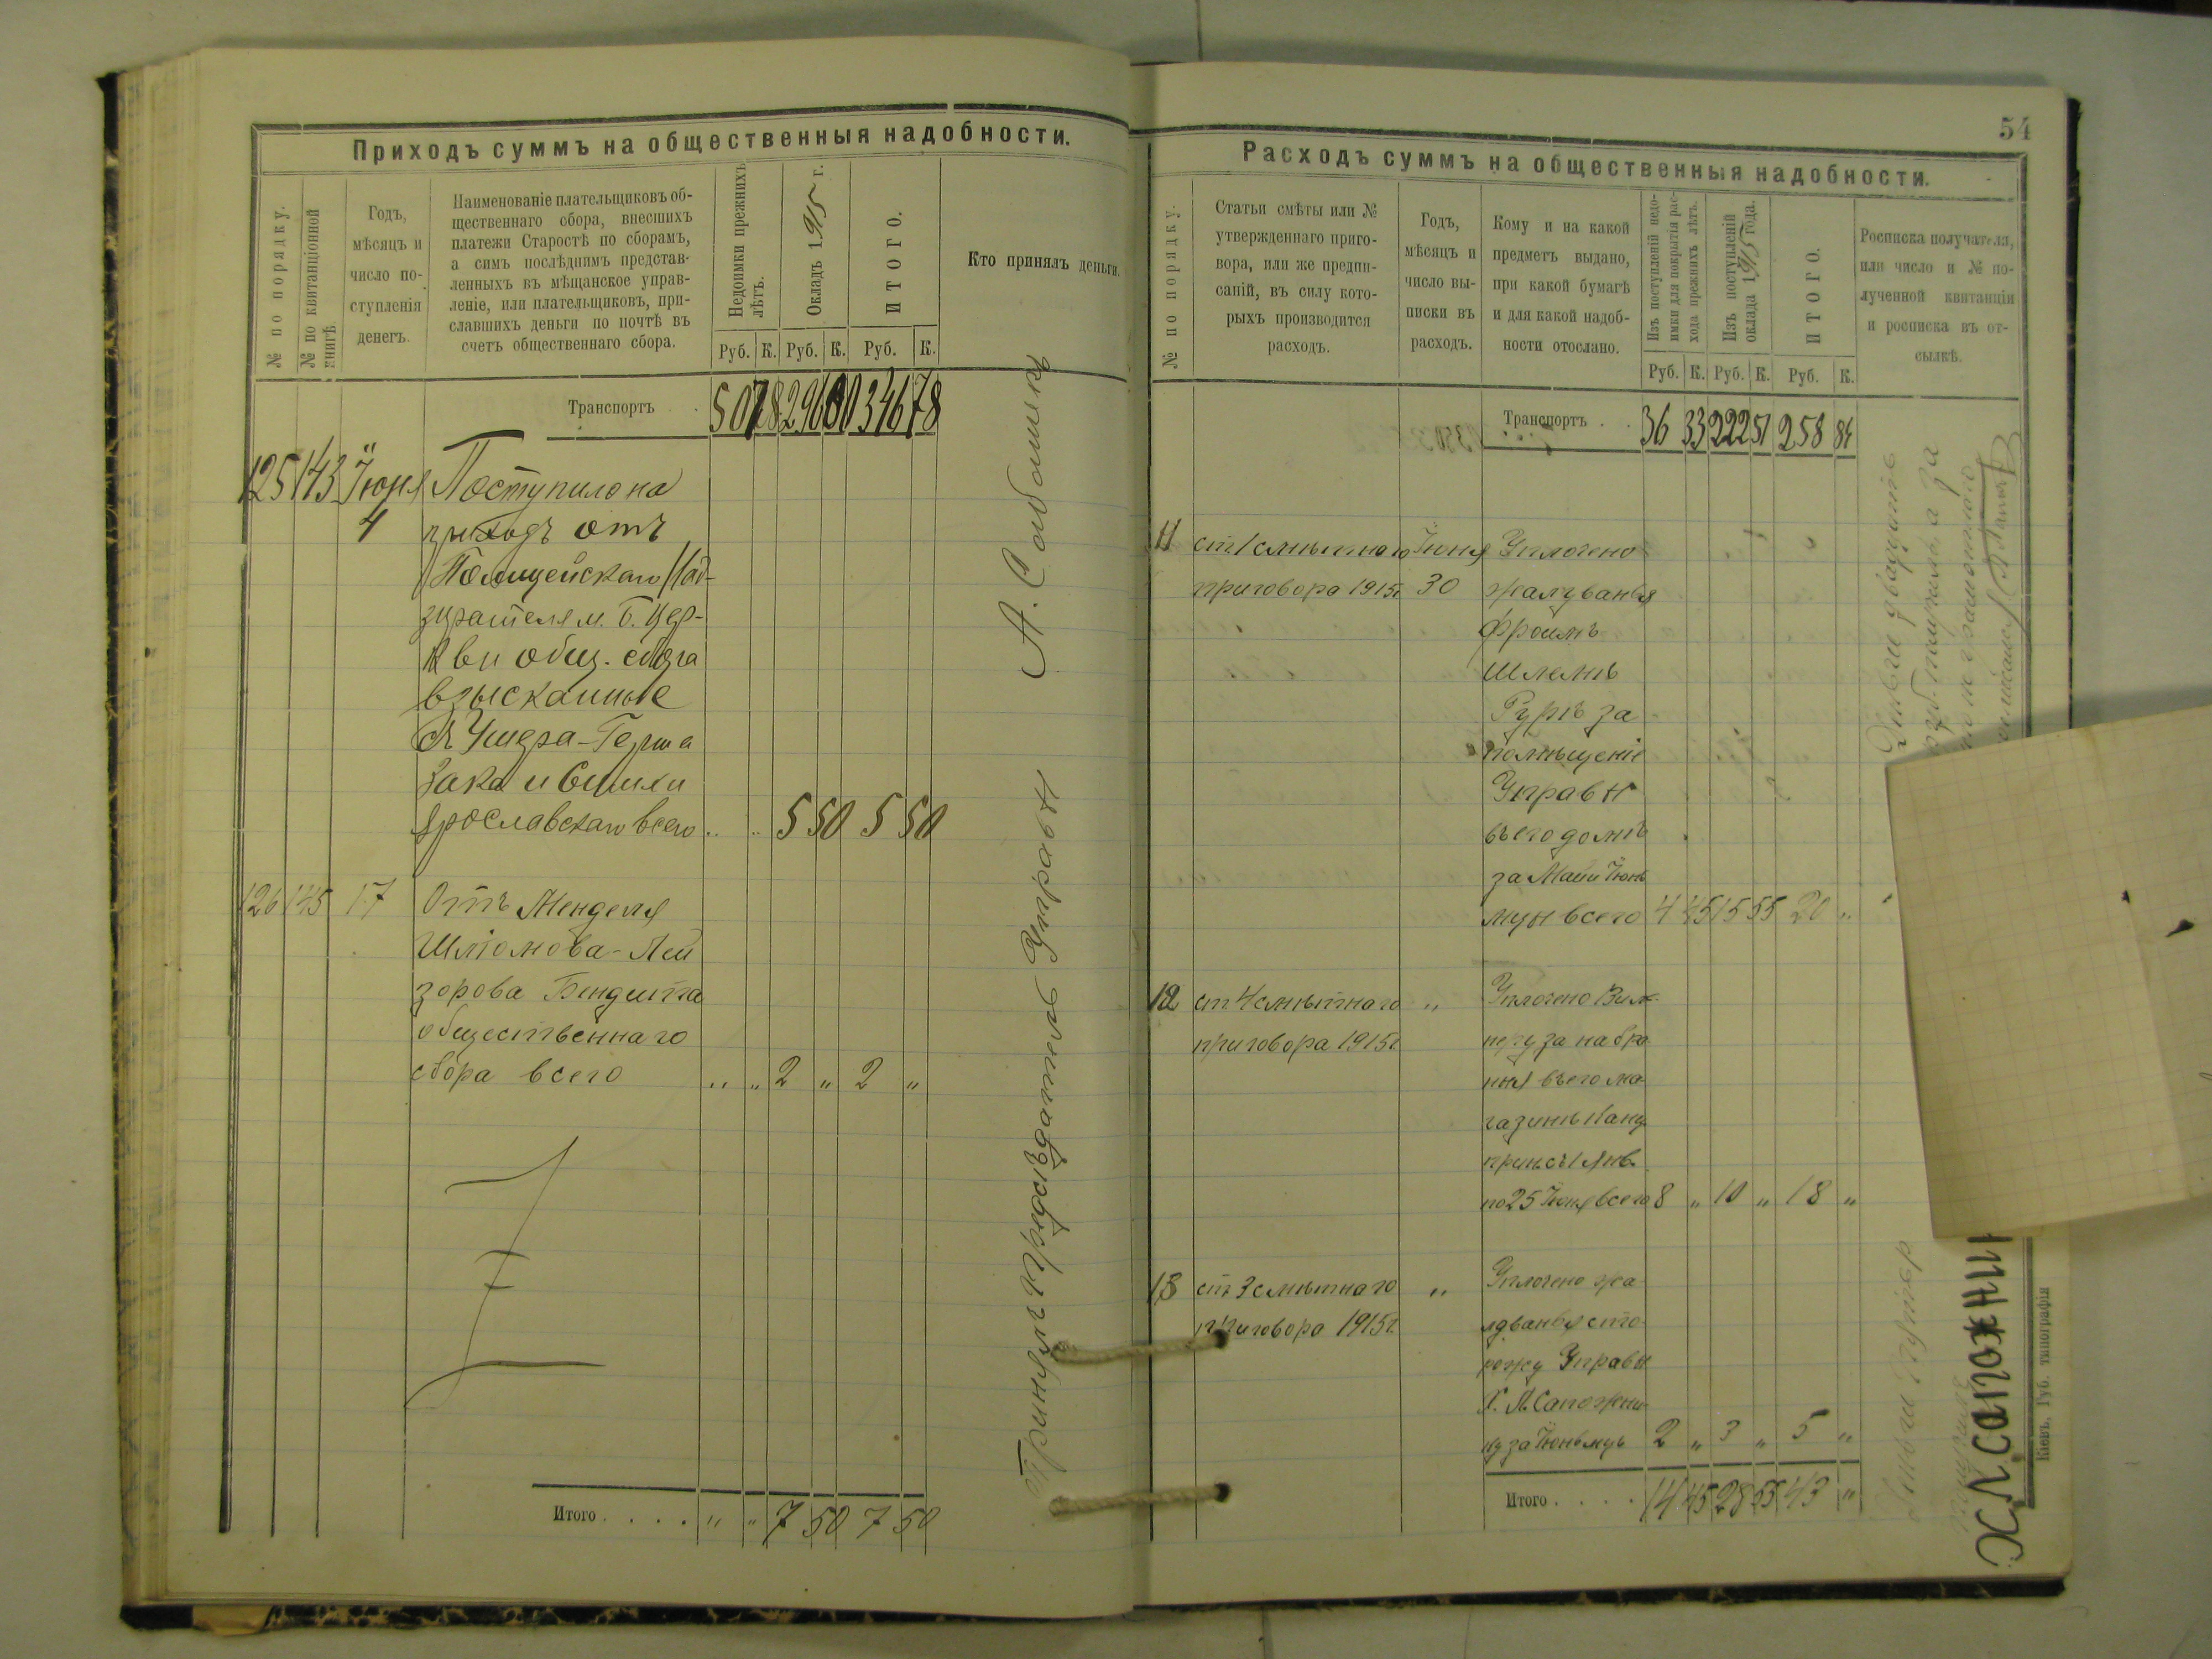 Приходъ суммъ на общественныя надобности.
№ по порядку.
№ по квитанціонной книгѣ.
Годъ,
мѣсяцъ и
число по-
ступленія
денегъ.
Наименованіе плательщиковъ об-
щественнаго сбора, внесшихъ
платежи Старостѣ по сборамъ,
а симъ послѣднимъ представ-
ленныхъ въ мѣщанское управ-
леніе, или плательщиковъ, при-
славшихъ деньги по почтѣ въ
счетъ общественнаго сбора.
Недоимки прежнихъ
лѣтъ.
Окладъ 1915 г.
ИТОГО.
Кто принялъ деньги.
Руб. К. Руб. К. Руб. К.
Транспортъ . . 50 78 296 00 346 78
125 143 Іюня Поступило на
4 приходъ отъ
Полицейскаго Над-
зирателя м. Б. Цер-
кви общ. сбора
взысканные
съ Ушера-Герша
Зака и
Ярославскаго всего " " 5 50 5 50
126 145 17 Отъ Менделя
Шліомова-Лей
зорова Бендита
общественнаго
сбора всего " " 2 " 2 "
Итого . . . . " " 7 50 7 50
Принялъ Предсѣдатель Управы
54
Расходъ суммъ на общественныя надобности.
№ по порядку.
Статьи смѣты или №
утвержденнаго приго-
вора, или же предпи-
саній, въ силу кото-
рыхъ производится
расходъ.
Годъ,
мѣсяцъ и
число вы-
писки въ
расходъ.
Кому и на какой
предметъ выдано,
при какой бумагѣ
и для какой надоб-
ности отослано.
Изъ поступленій недо-
имки для покрытія рас-
хода прежнихъ лѣтъ.
Изъ поступленій
оклада 1915 года.
ИТОГО.
Росписка получателя,
или число и № по-
лученной квитанціи
и росписка въ от-
сылкѣ.
Руб. К. Руб. К. Руб. К.
Транспортъ . . 36 33 222 51 258 84
11 ст 1 смѣтнаго Іюня Уплочено
приговора 1915г. 30 жалуванья
Фроимъ
Шлемѣ
за
помѣщеніе
Управы
въ его домѣ
за Май и Іюнь
мцы всего 4 45 15 55 20 "
12 ст 4 смѣтнаго " Уплочено
приговора 1915г. за набра
ныя въ его ма-
газинѣ Канц.
съ 1 Янв.
по 25 Іюня всего 8 " 10 " 18 "
13 ст 3 смѣтнаго " Уплочено жа
приговора 1915г. луванья сто-
рожу Управы
Х. Л. Сапожни-
ку за Іюнь мць 2 " 3 " 5 "
Итого . . . . 14 45 28 55 43 "
Деньги двадцать
руб. получилъ а за
ХЛ Сапожни
Кіевъ, Губ. типографія